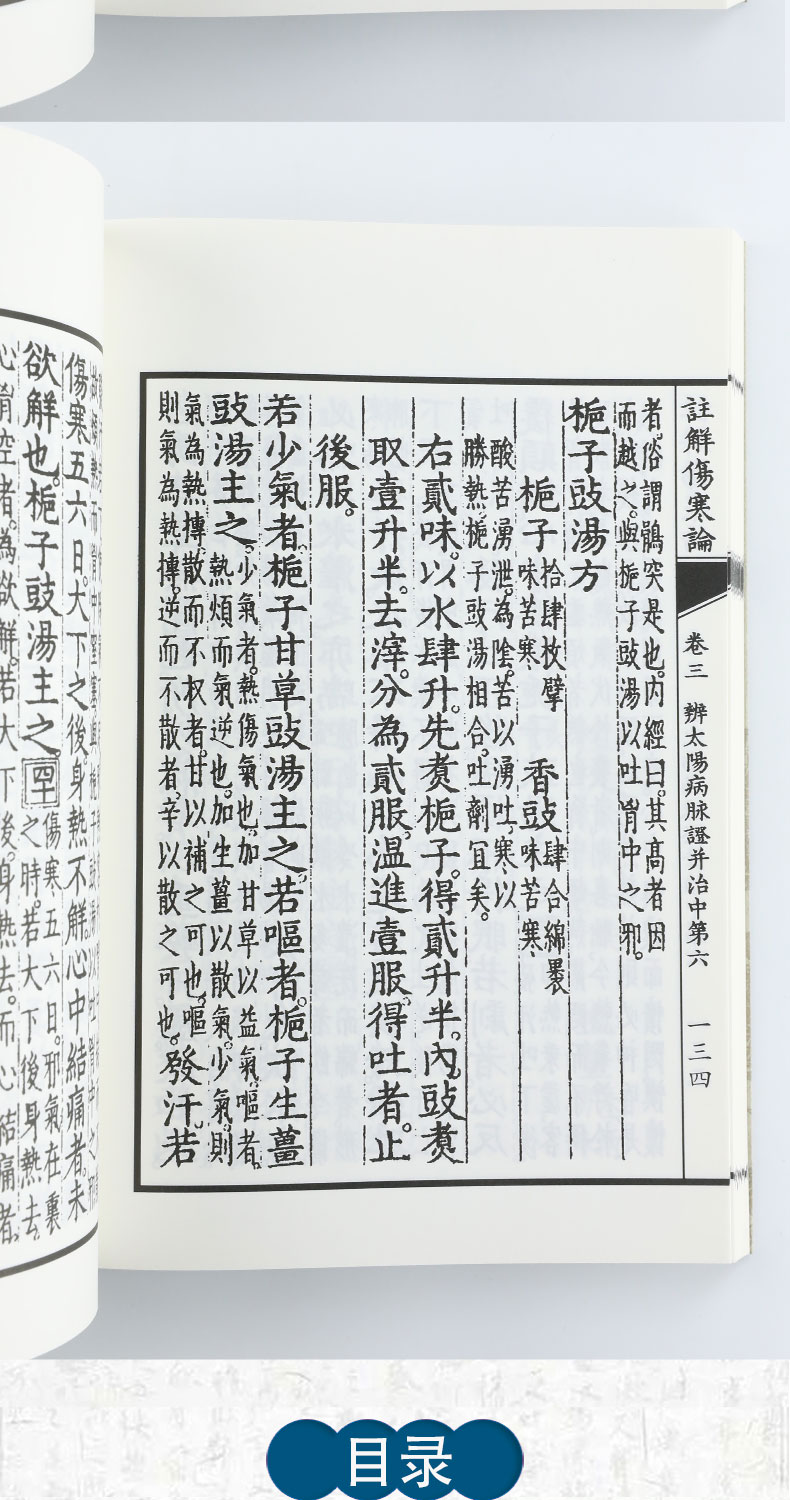 註解傷寒論
卷三 辨太陽病脉證并治中第六 一三四
者。俗謂鶻突是也。内經曰。其高者因
而越之。與梔子豉湯以吐胷中之邪。
梔子豉湯方
梔子
拾肆枚擘
味苦寒
香豉
肆合綿褁
味苦寒
酸苦湧泄。為陰。苦以湧吐。寒以
勝熱。梔子豉湯相合。吐劑冝矣。
右貳味。以水肆升。先煑梔子。得貳升半。內豉煑
取壹升半。去滓。分為貳服。温進壹服。得吐者。止
後服。
若少氣者。梔子甘草豉湯主之。若嘔者。梔子生薑
豉湯主之。
少氣者。熱傷氣也。加甘草以益氣。嘔者。
熱煩而氣逆也。加生薑以散氣。少氣。則
氣為熱摶。散而不权者。甘以補之可也。嘔
則氣為熱摶。逆而不散者。辛以散之可也。
發汗若
傷寒五六日。大下之後。身熱不解。心中結痛者。未
欲解也。梔子豉湯主之。
傷寒五六日。邪氣在裏
之時。若大下後。身熱去。
心胷空者。為欲解。若大下後。身熱去。而心結痛者。
目录